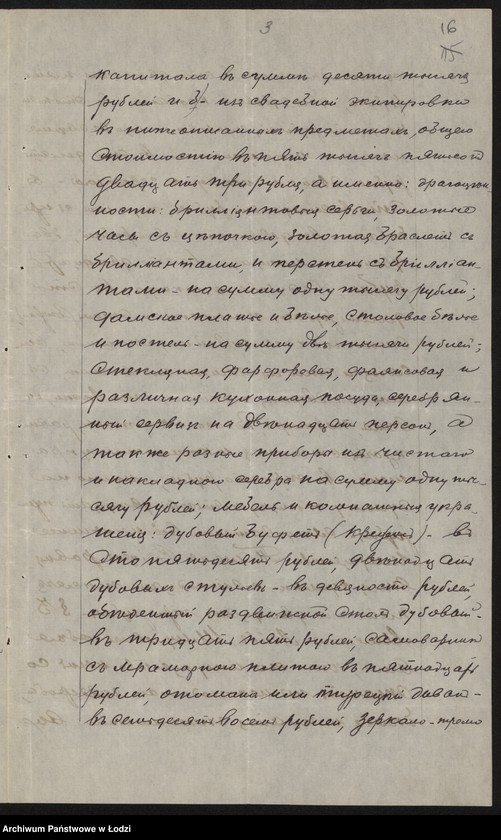 3
16
15
капитала въ суммѣ десяти тысячъ
рублей и б/ изъ свадебной экипировки
въ нижеописанныхъ предметахъ, общею
стоимостію въ пять тысячъ пятьсотъ
двадцать три рубля, а именно: драгоцѣн-
ности: брилліантовыя серьги, золотые
часы съ цѣпочкою, золотая браслетъ съ
брилліантами, и перстень съ брилліан-
тами - на сумму одну тысячу рублей;
дамское платье и бѣлье, столовое бѣлье
и постель - на сумму двѣ тысячи рублей;
стеклянная, фарфоровая, фаянсовая и
различная кухонная посуда, серебрян-
ный сервизъ на двѣнадцать персонъ, а
также разные приборы изъ чистаго
и накладного серебра на сумму одну ты-
сячу рублей; мебель и комнатныя укра-
шенія: дубовый буфетъ (Креденсъ) - въ
сто пятьдесятъ рублей, двѣнадцать
дубовыхъ стульевъ - въ девяносто рублей,
обѣденный раздвижной столъ дубовый -
въ тридцать пять рублей, самоварникъ
съ мраморною плитою въ пятнадцать
рублей, отоманъ или турецкій диванъ -
въ семьдесятъ восемь рублей, зеркало-тремо
Archiwum Państwowe w Łodzi